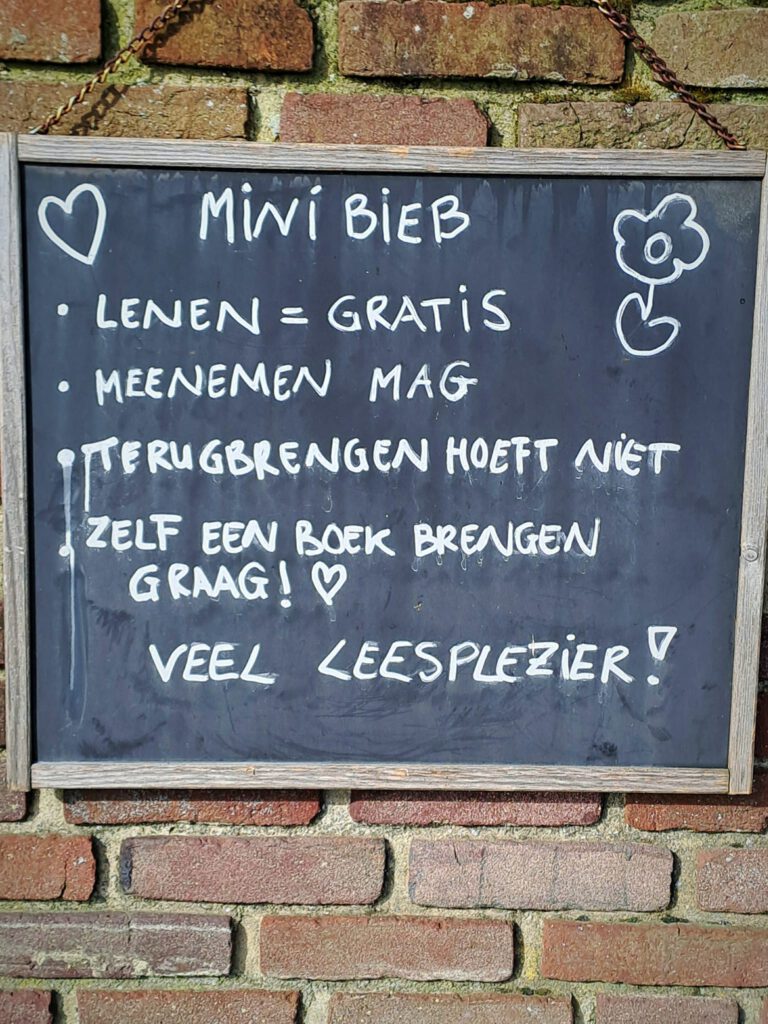 MINI BIEB
• LENEN = GRATIS
• MEENEMEN MAG
• TERUGBRENGEN HOEFT NIET
• ZELF EEN BOEK BRENGEN
GRAAG!
VEEL LEESPLEZIER!